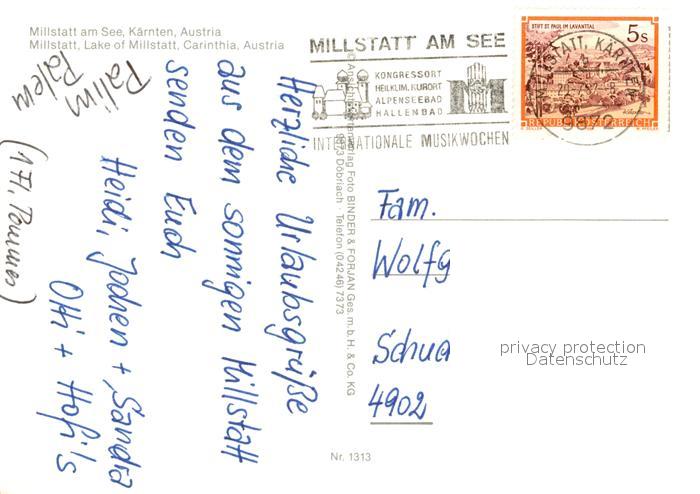 Millstatt am See, Kärnten, Austria
Millstatt, Lake of Millstatt, Carinthia, Austria
MILLSTATT AM SEE
KONGRESSORT
HEILKLIM. KURORT
ALPENSEEBAD
HALLENBAD
INTERNATIONALE MUSIKWOCHEN
STIFT ST. PAUL IM LAVANTTAL
5s
REPUBLIK ÖSTERREICH
MILLSTATT, KÄRNTEN
9872
Herzliche Urlaubsgrüße
aus dem sonnigen Millstatt
senden Euch
Heidi, Jochen + Sandra
Otti + Hofi's
Palim
Palem
Foto BINDER & FORJAN Ges. m. b. H. & Co. KG
9873 Döbriach · Telefon (04246) 7373
Fam.
Wolfg
Schua
4902
privacy protection
Datenschutz
Nr. 1313